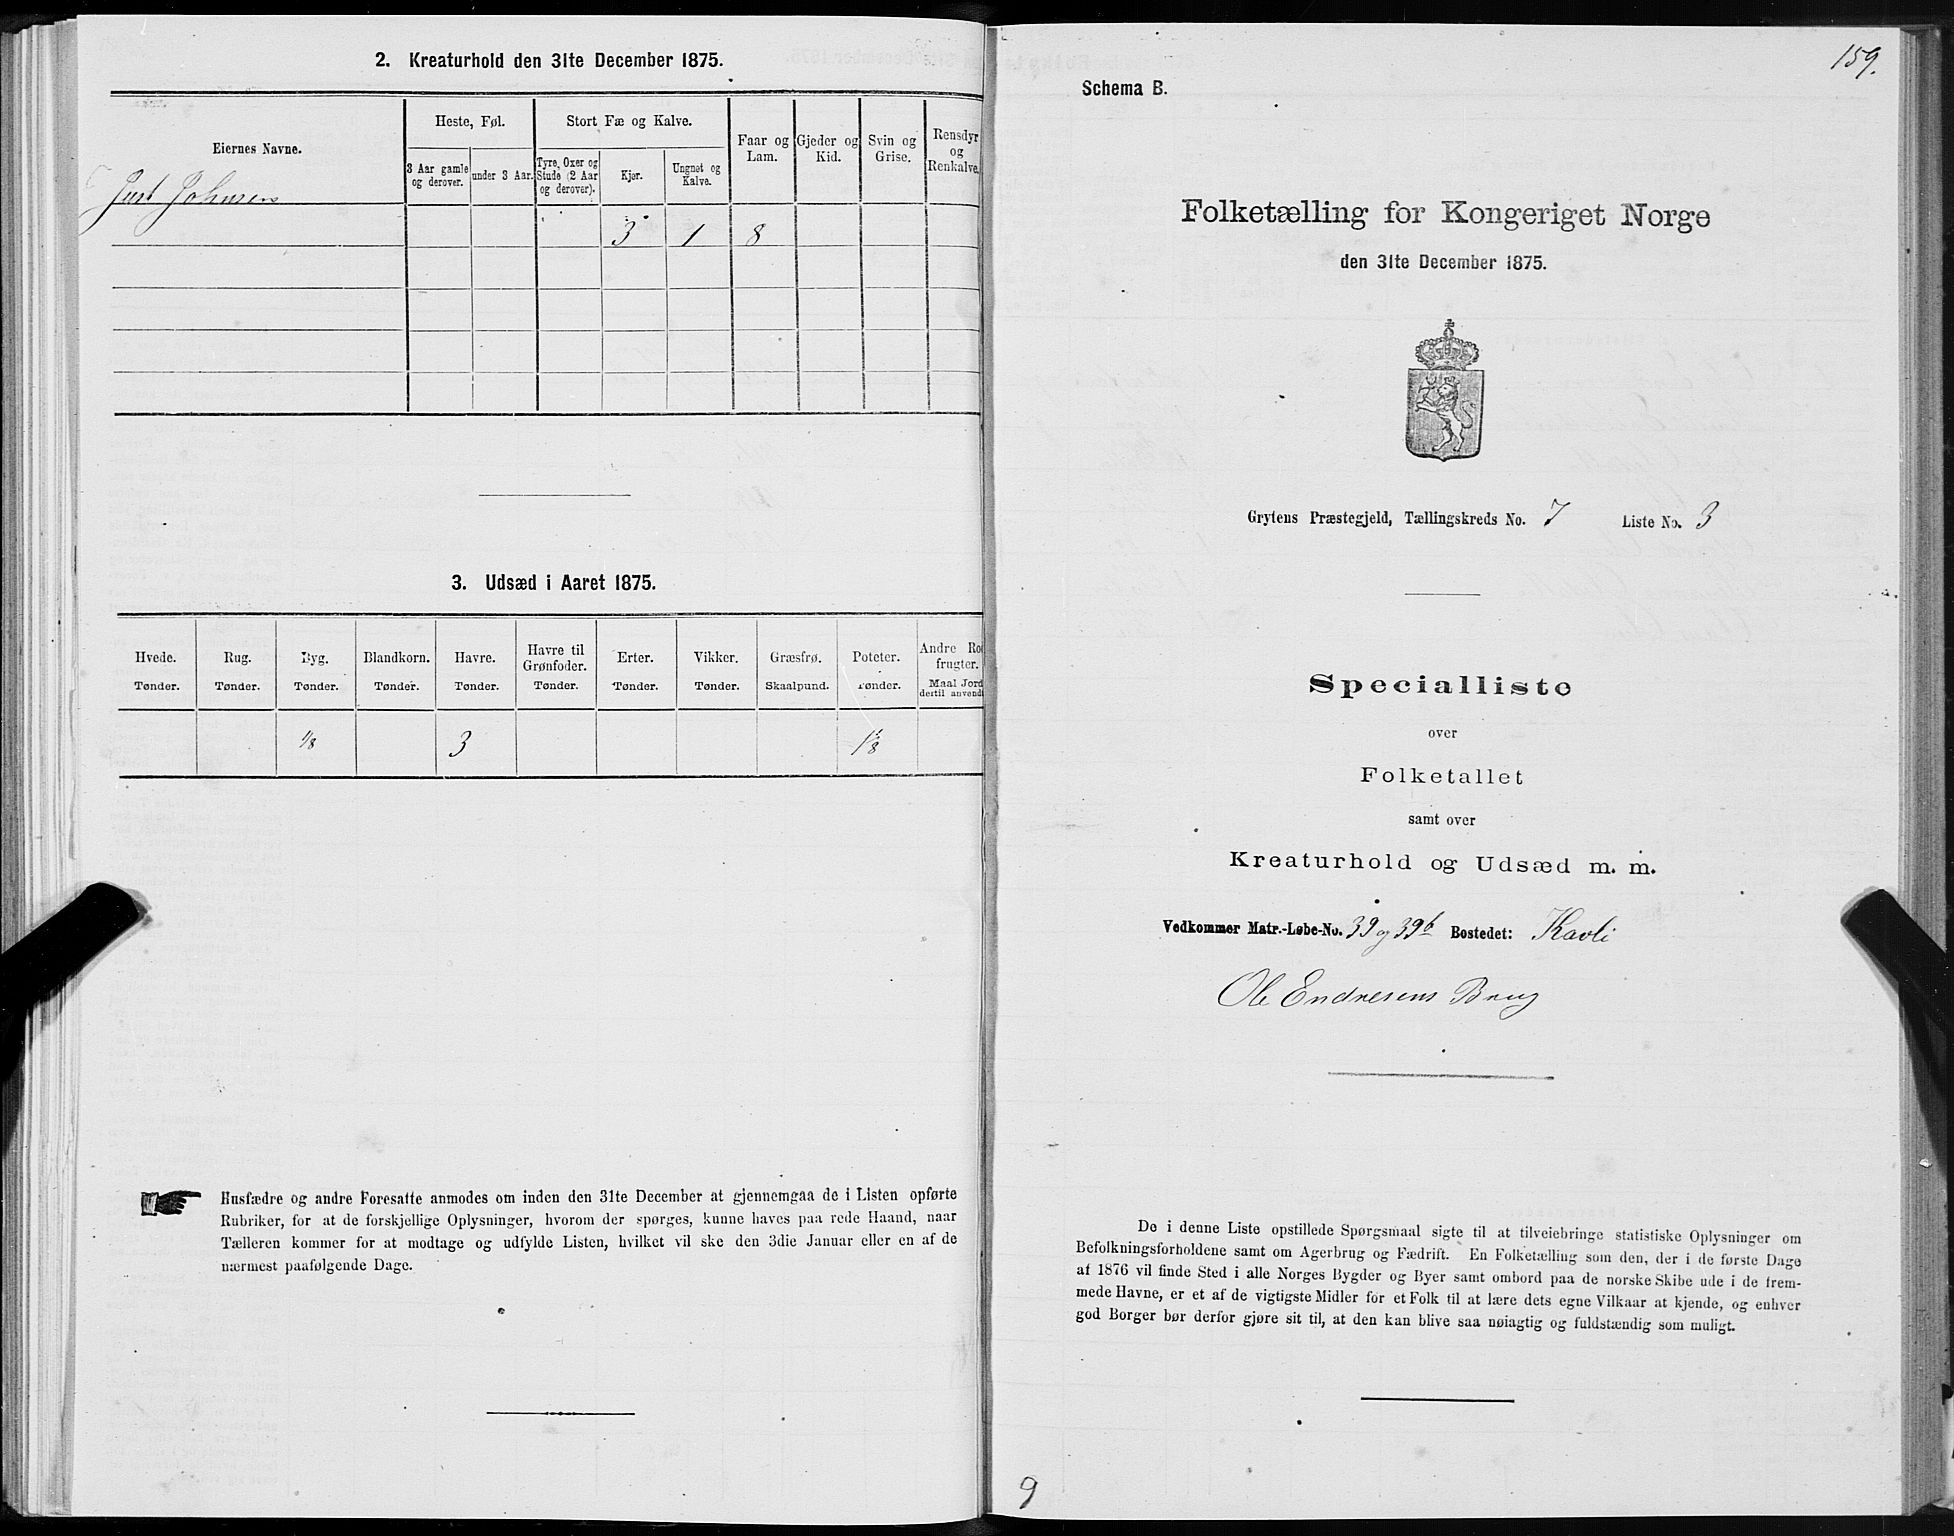 2. Kreaturhold den 31te December 1875.
Eiernes Navne.
Heste, Føl.
Stort Fæ og Kalve.
Faar og Lam.
Gjeder og Kid.
Svin og Grise.
Rensdyr og Renkalve.
3 Aar gamle og derover.
under 3 Aar.
Tyre, Oxer og Stude (2 Aar og derover).
Kjør.
Ungnøt og Kalve.
Just Johnsen
3 1 8
3. Udsæd i Aaret 1875.
Hvede. Rug. Byg. Blandkorn. Havre. Havre til Grønfoder. Erter. Vikker. Græsfrø. Poteter. Andre Ro frugter.
Tønder. Tønder. Tønder. Tønder. Tønder. Tønder. Tønder. Tønder. Skaalpund. Tønder. Maal Jord dertil anvendt
1/8 3
Husfædre og andre Foresatte anmodes om inden den 31te December at gjennemgaa de i Listen opførte
Rubriker, for at de forskjellige Oplysninger, hvorom der spørges, kunne haves paa rede Haand, naar
Tælleren kommer for at modtage og udfylde Listen, hvilket vil ske den 3die Januar eller en af de
nærmest paafølgende Dage.
159.
Schema B.
Folketælling for Kongeriget Norge
den 31te December 1875.
Grytens Præstegjeld, Tællingskreds No. 7 Liste No. 3
Specialliste
over
Folketallet
samt over
Kreaturhold og Udsæd m. m.
Vedkommer Matr.-Løbe-No. 39 og 39b Bostedet: Kavli
Ole Endresens Brug
De i denne Liste opstillede Spørgsmaal sigte til at tilveiebringe statistiske Oplysninger om
Befolkningsforholdene samt om Agerbrug og Fædrift. En Folketælling som den, der i de første Dage
af 1876 vil finde Sted i alle Norges Bygder og Byer samt ombord paa de norske Skibe ude i de frem-
mede Havne, er et af de vigtigste Midler for et Folk til at lære dets egne Vilkaar at kjende, og enhver
god Borger bør derfor gjøre sit til, at den kan blive saa nøiagtig og fuldstændig som muligt.
9